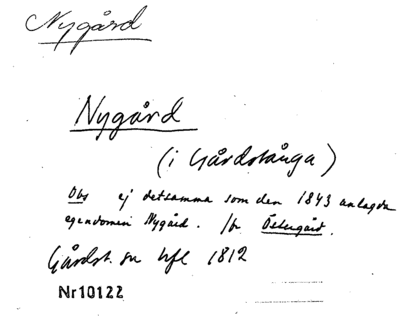 Nygård
Nygård
(i Gårdstånga)
Obs ej detsamma som den 1843 anlagda
egendomen Nygård. jfr Östergård.
Gårdst. sn hfl 1812
Nr10122